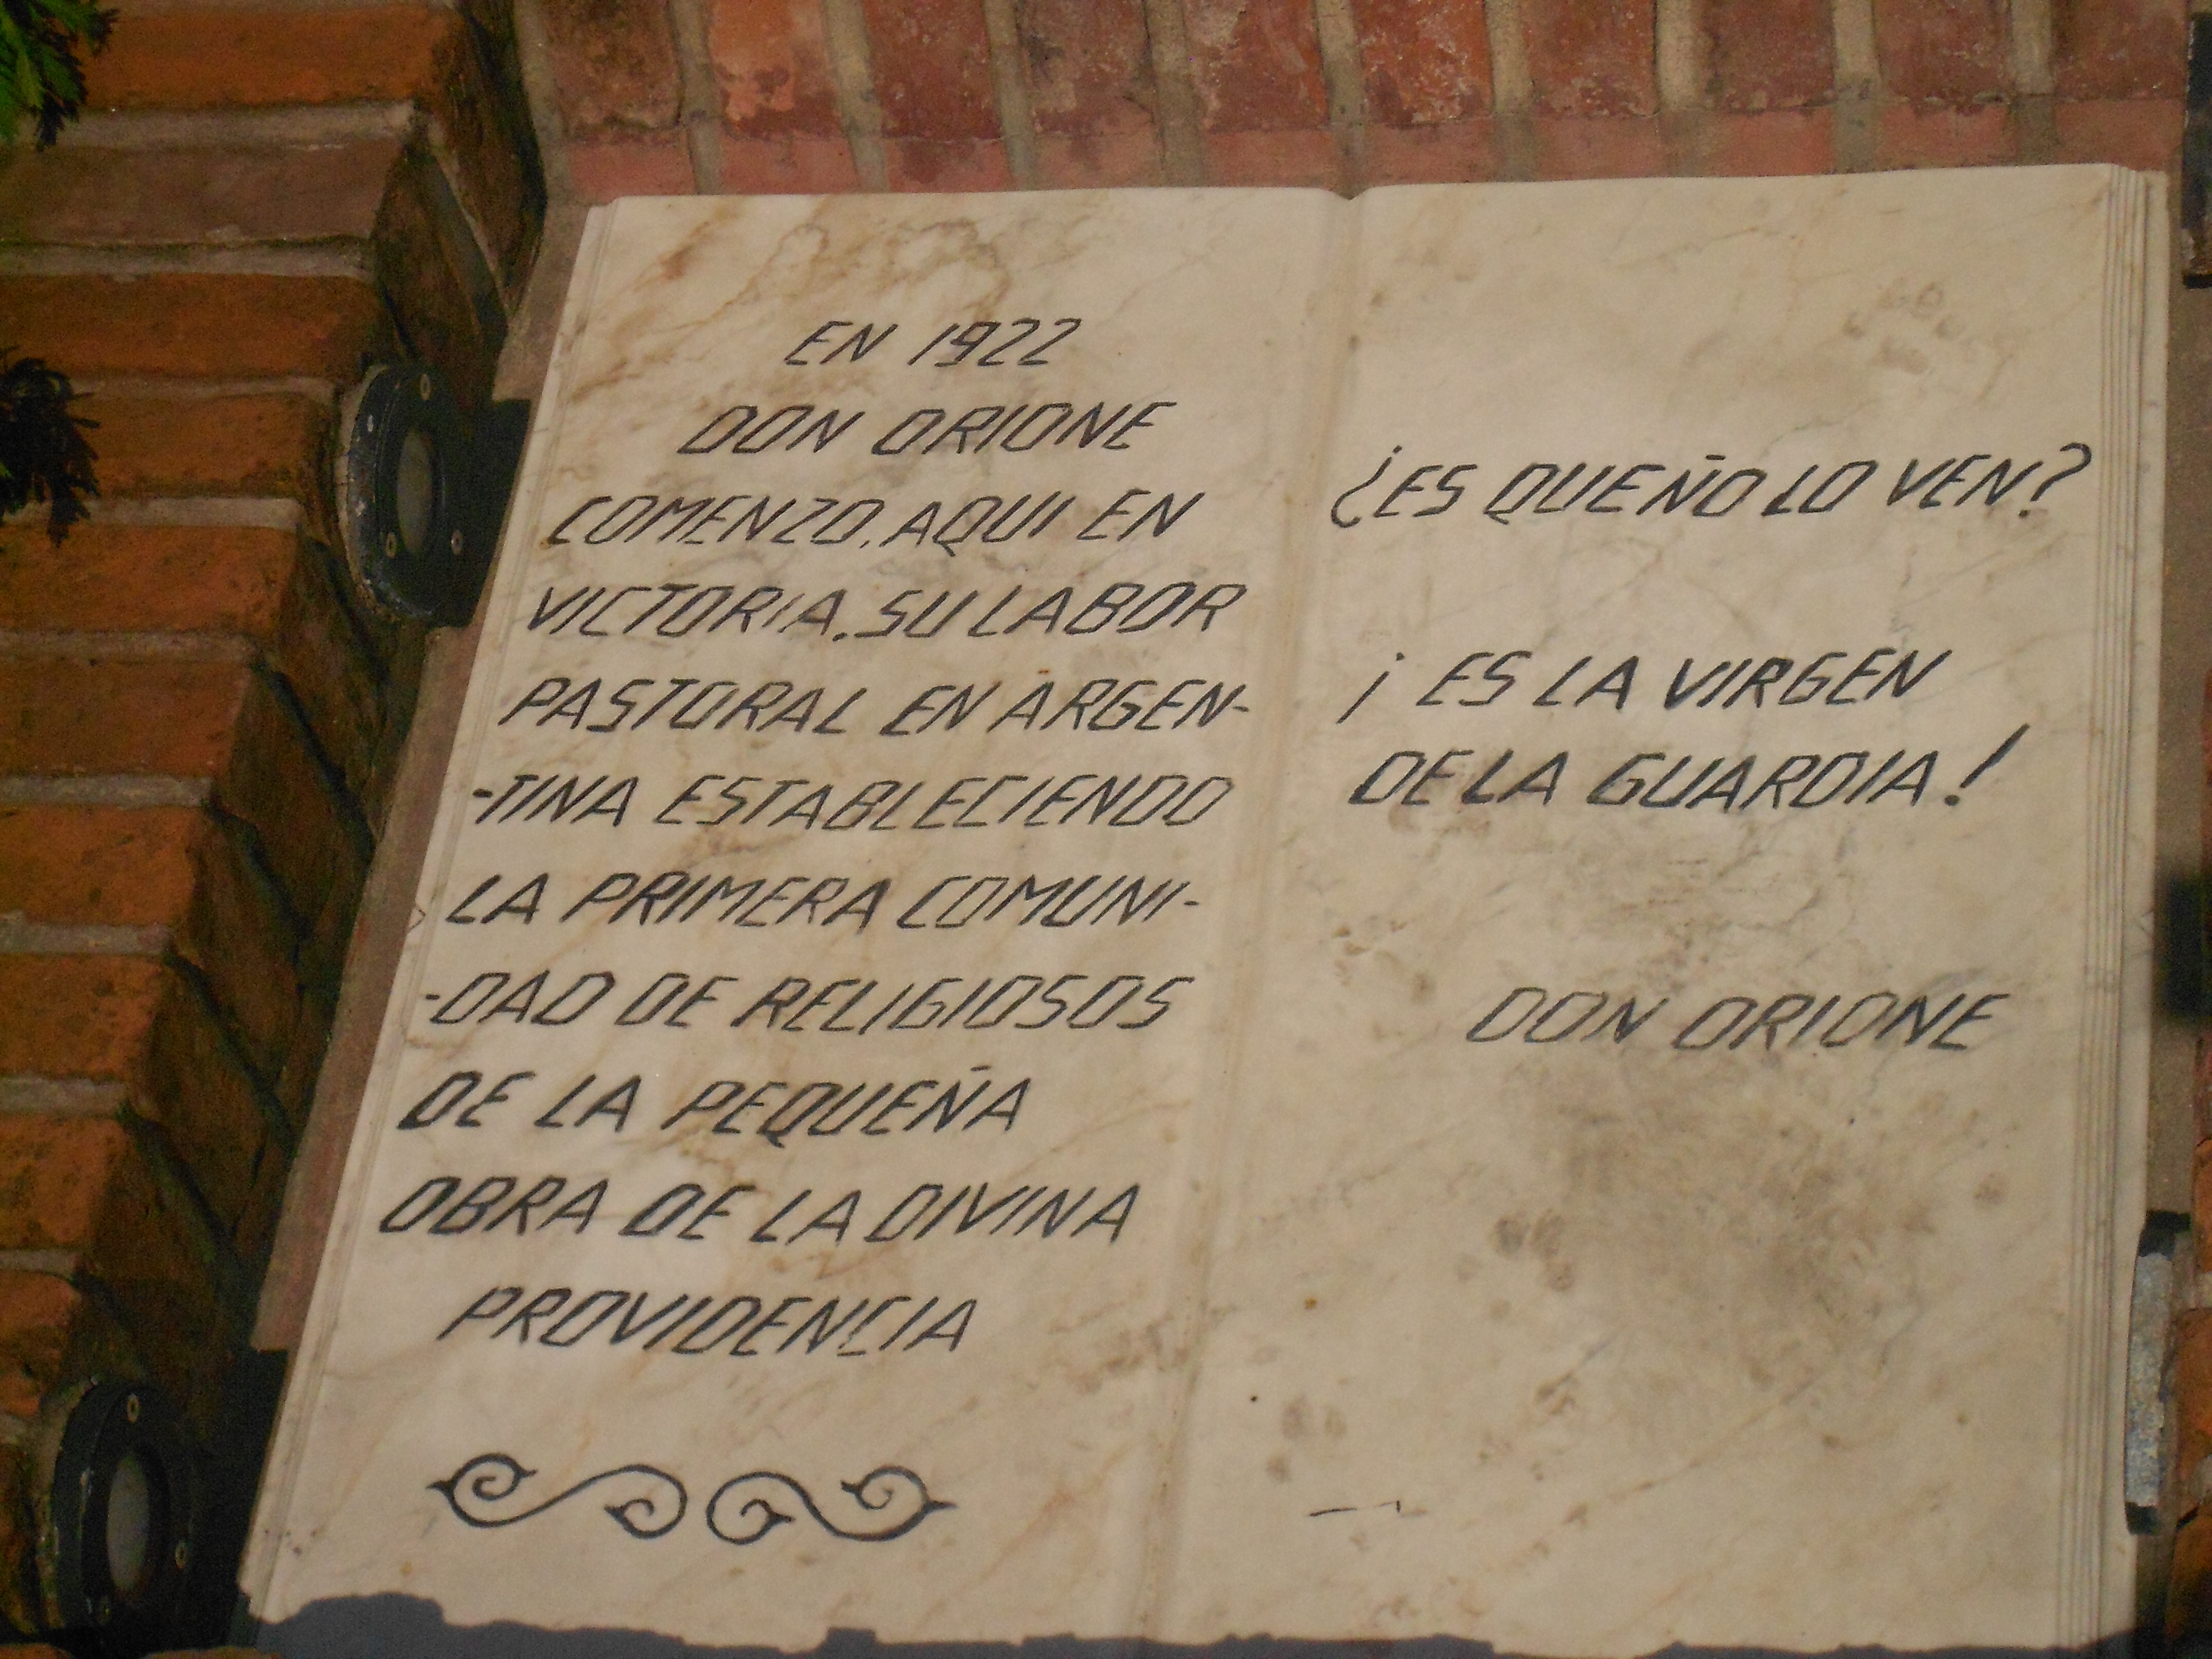 EN 1922
DON ORIONE
COMENZO, AQUI EN
VICTORIA, SU LABOR
PASTORAL EN ARGEN-
-TINA ESTABLECIENDO
LA PRIMERA COMUNI-
-DAD DE RELIGIOSOS
DE LA PEQUEÑA
OBRA DE LA DIVINA
PROVIDENCIA
¿ES QUE ÑO LO VEN?
¡ ES LA VIRGEN
DE LA GUARDIA!
DON ORIONE